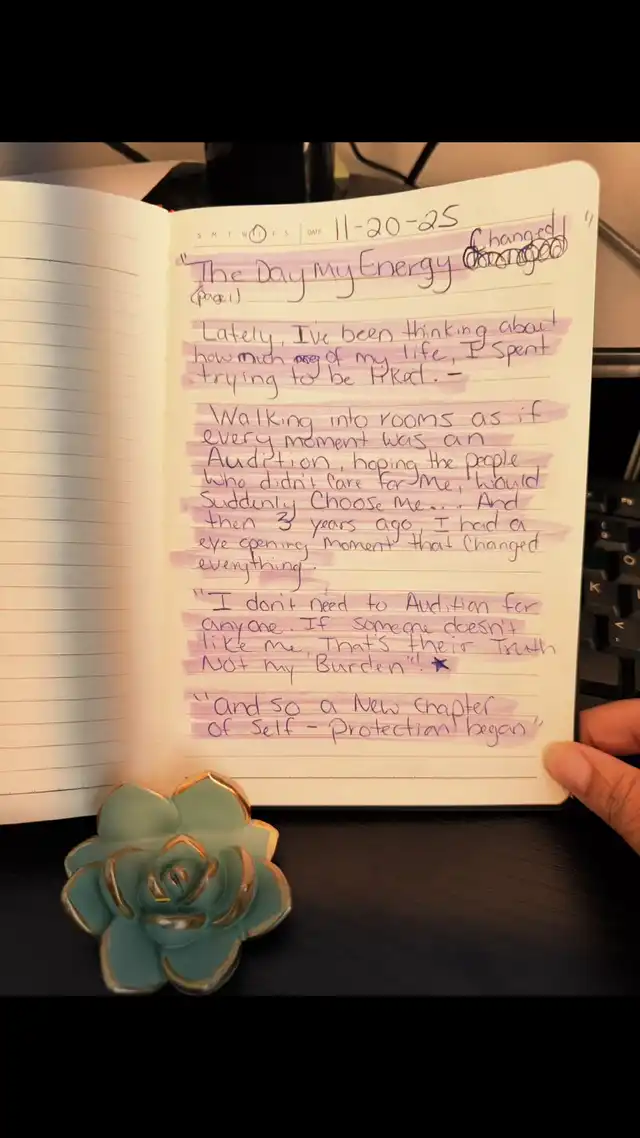 S M T W T F S | DATE 11-20-25
"The Day My Energy Changed!"
(page 1)
Lately, I've been thinking about
how much of my life, I spent
trying to be liked. –
Walking into rooms as if
every moment was an
Audition, hoping the people
who didn't care for me, would
Suddenly Choose me... And
then 3 years ago, I had a
eye opening moment that Changed
everything.
"I don't need to Audition for
anyone. If someone doesn't
like me, That's their Truth
Not my Burden". ★
"and so a New Chapter
of Self - Protection began"